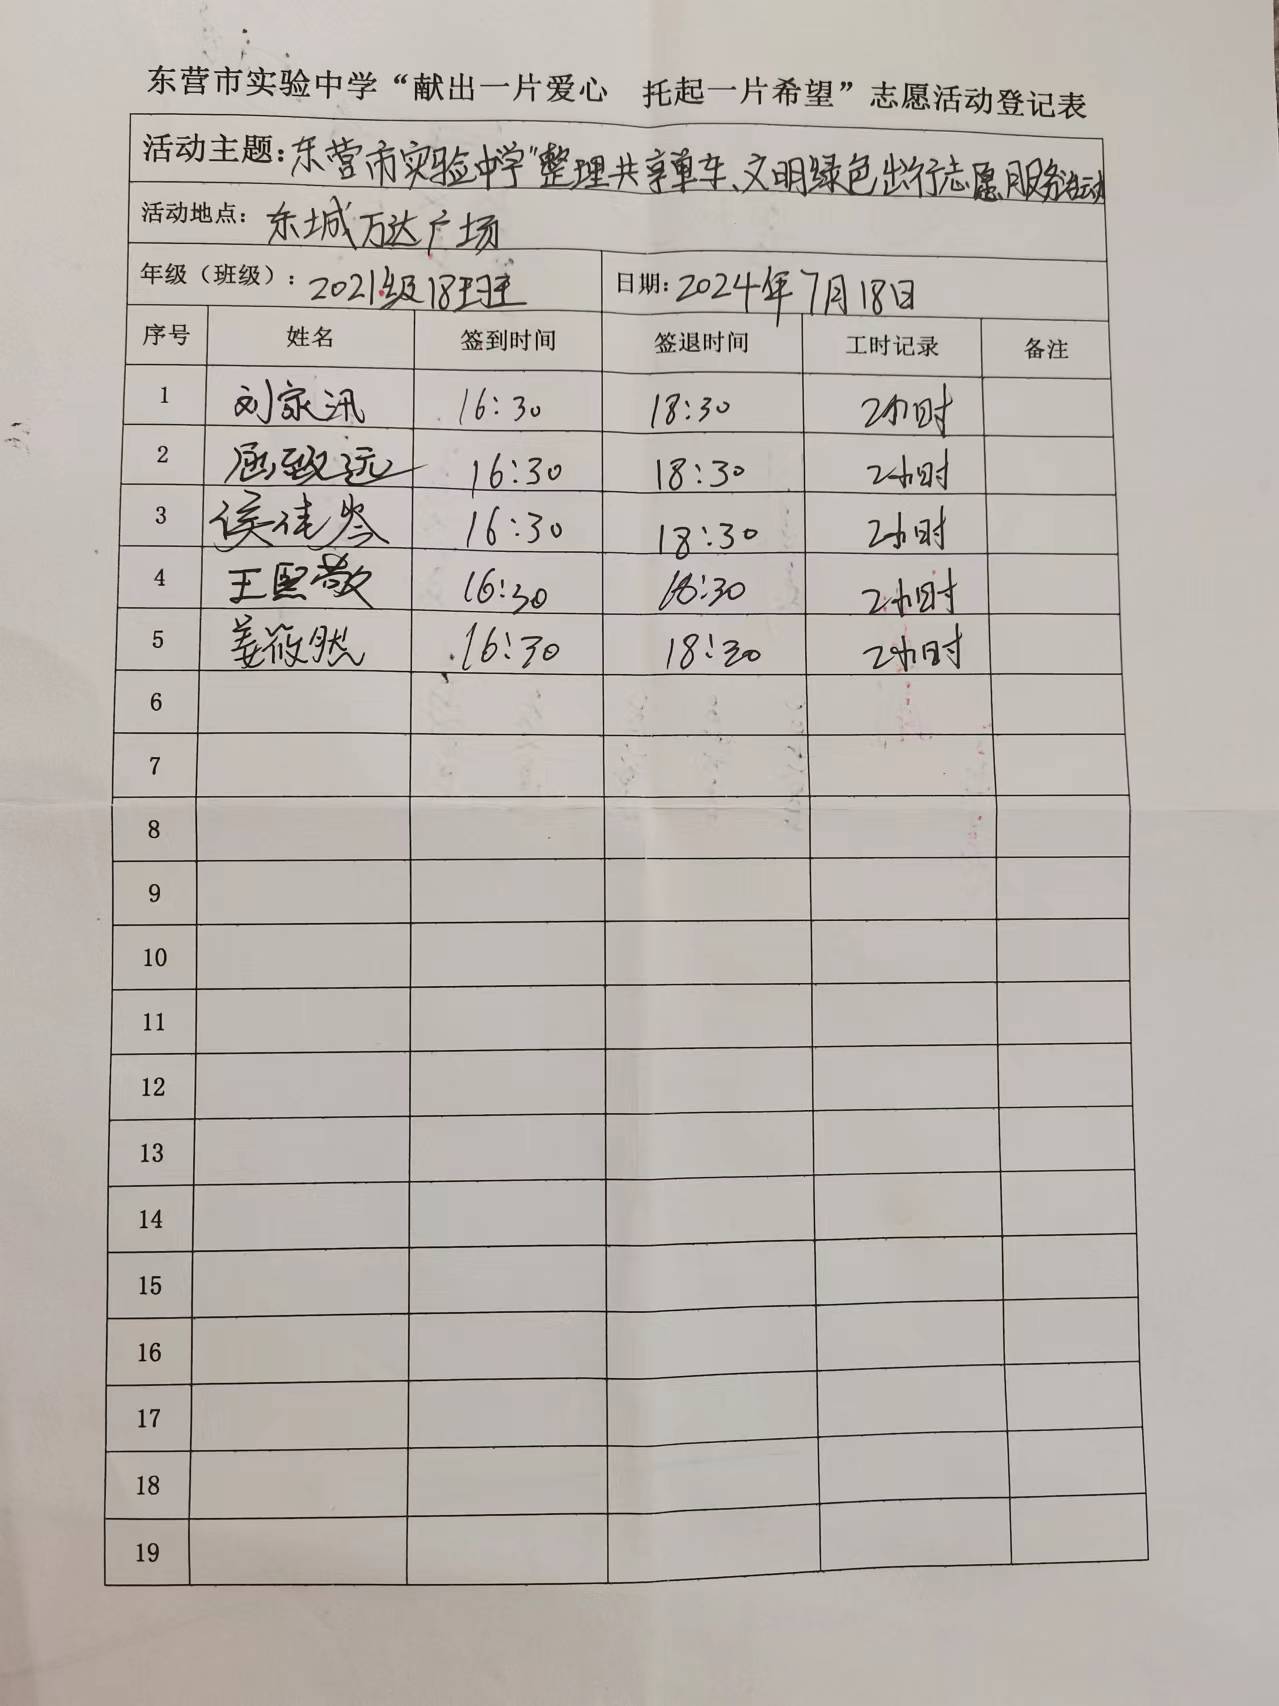 东营市实验中学“献出一片爱心 托起一片希望”志愿活动登记表
活动主题：东营市实验中学"整理共享单车、文明绿色出行志愿服务活动
活动地点：东城万达广场
年级（班级）：2021级18班 日期：2024年7月18日
序号 姓名 签到时间 签退时间 工时记录 备注
1 刘家汛 16:30 18:30 2小时
2 屈致远 16:30 18:30 2小时
3 侯佳岑 16:30 18:30 2小时
4 王熙敬 16:30 18:30 2小时
5 姜筱然 16:30 18:30 2小时
6
7
8
9
10
11
12
13
14
15
16
17
18
19